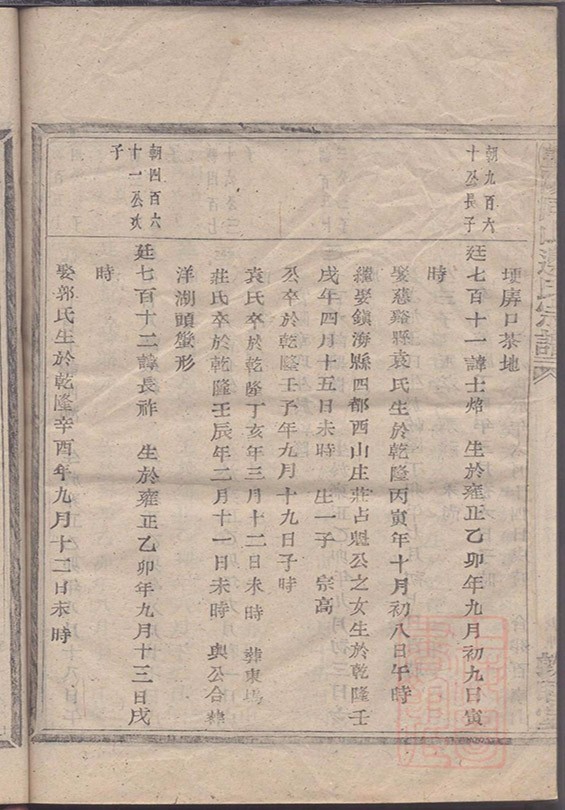 氏宗譜
埂
口基地
朝九百六
十公長子
廷七百十一諱士焰 生於雍正乙卯年九月初九日寅
時
娶慈谿縣袁氏生於乾隆丙寅年十月初八日午時
繼娶鎮海縣四都西山庄莊占魁公之女生於乾隆壬
戌年四月十五日未時 生一子 宗高
公卒於乾隆壬子年九月十九日子時
袁氏卒於乾隆丁亥年三月十二日未時 葬東
莊氏卒於乾隆壬辰年二月十一日未時 與公合葬
洋湖頭蟹形
朝四百六
十一公次
子
廷七百十二諱長祚 生於雍正乙卯年九月十三日戌
時
娶郭氏生於乾隆辛酉年九月十二日未時